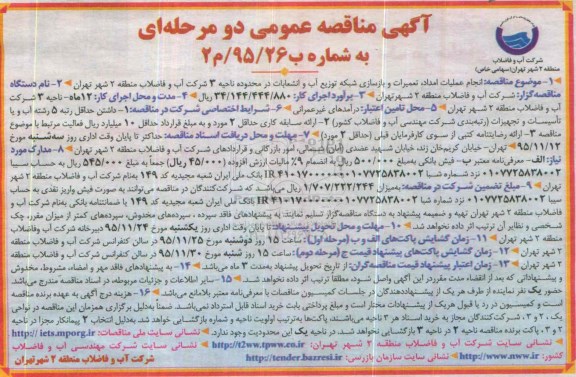 آگهی مناقصه عمومی دو مرحله‌ای
به شماره ب/۹۵/۲۶/م۲
شرکت آب و فاضلاب
منطقه ۲ شهر تهران (سهامی خاص)
۱- موضوع مناقصه: انجام عملیات امداد، تعمیرات و بازسازی شبکه توزیع آب و انشعابات در محدوده ناحیه ۳ شرکت آب و فاضلاب منطقه ۲ شهر تهران ۲- نام دستگاه
مناقصه گزار: شرکت آب و فاضلاب منطقه ۲ شهر تهران ۳- برآورد اجرای کار: ۳۴/۱۴۴/۴۴۴/۸۸۰ ریال ۴- مدت و محل اجرای کار: ۱۲ ماه- ناحیه ۳ شرکت
آب و فاضلاب منطقه ۲ شهر تهران ۵- محل تامین اعتبار: درآمدهای غیرعمرانی ۶- شرایط اختصاصی شرکت در مناقصه: ۱- داشتن حداقل رتبه ۵ رشته آب و یا
تأسیسات و تجهیزات (رتبه‌بندی شرکت مهندسی آب و فاضلاب کشور) ۲- ارائه سابقه کاری حداقل ۲ مورد و به مبلغ قرارداد حداقل ۱۰ میلیارد ریال فعالیت مرتبط با موضوع
مناقصه ۳- ارائه رضایتنامه کتبی از سوی کارفرمایان قبلی (حداقل ۲ مورد) ۷- مهلت و محل دریافت اسناد مناقصه: حداکثر تا پایان وقت اداری روز سه‌شنبه مورخ
۹۵/۱۱/۱۲ تهران- خیابان کریم‌خان زند، خیابان شهید عضدی امور بازرگانی و قراردادهای شرکت آب و فاضلاب منطقه ۲ شهر تهران ۸- مدارک مورد
نیاز: الف- معرفی‌نامه معتبر ب- فیش بانکی به‌مبلغ ۵۰۰/۰۰۰ ریال به انضمام ۹٪ مالیات ارزش افزوده (۴۵/۰۰۰ ریال) جمعاً به مبلغ ۵۴۵/۰۰۰ ریال به حساب سیبا
بانک ملی ایران شعبه مجیدیه کد ۱۴۹ به‌نام شرکت آب و فاضلاب منطقه ۲ شهر
تهران ۹- مبلغ تضمین شرکت در مناقصه: به‌میزان ۱/۷۰۷/۲۲۲/۲۴۴ ریال می‌باشد که شرکت‌کنندگان در مناقصه می‌توانند به صورت فیش واریز نقدی به حساب
بانک ملی ایران شعبه مجیدیه کد ۱۴۹ یا ضمانتنامه بانکی به‌نام شرکت آب و
فاضلاب منطقه ۲ شهر تهران تهیه و ضمیمه پیشنهاد به دستگاه مناقصه‌گزار تسلیم نمایند. به پیشنهادهای فاقد سپرده، سپرده‌های مخدوش، سپرده‌های کمتر از میزان مقرر، چک
شخصی و نظایر آن ترتیب اثر داده نخواهد شد. ۱۰- مهلت و محل تحویل پیشنهادات: تا پایان وقت اداری روز یکشنبه مورخ ۹۵/۱۱/۲۴ دبیرخانه شرکت آب و فاضلاب
منطقه ۲ شهر تهران ۱۱- زمان گشایش پاکت‌های الف و ب (مرحله اول): ساعت ۱۵ روز دوشنبه مورخ ۹۵/۱۱/۲۵ در سالن کنفرانس شرکت آب و فاضلاب منطقه
۲ شهر تهران ۱۲- زمان گشایش پاکت‌های پیشنهاد قیمت ج (مرحله دوم): ساعت ۱۵ روز شنبه مورخ ۹۵/۱۱/۳۰ در سالن کنفرانس شرکت آب و فاضلاب منطقه
۲ شهر تهران ۱۳- زمان اعتبار پیشنهاد قیمت مناقصه‌گران: از تاریخ تحویل پیشنهاد به‌مدت ۳ ماه می‌باشد ۱۴- به پیشنهادهای فاقد مهر و امضاء، مشروط، مخدوش
و پیشنهاداتی که بعد از انقضاء مدت مقرر در این آگهی واصل شود، مطلقا ترتیب اثر داده نخواهد شد. ۱۵- سایر اطلاعات و جزئیات مربوطه، در اسناد مناقصه مندرج می‌باشد.
حضور یک نفر نماینده از طرف هر یک از پیشنهاددهندگان در جلسات کمیسیون مناقصات با معرفی‌نامه معتبر بلامانع می‌باشد ۱۶- هزینه درج آگهی به عهده برنده مناقصه
است و کمیسیون در رد یا قبول هریک از پیشنهادات مختار است
نشانی سایت ملی مناقصات: http://iets.mporg.ir
نشانی سایت شرکت آب و فاضلاب منطقه ۲ شهر تهران: http://t2ww.tpww.co.ir نشانی سایت شرکت مهندسی آب و فاضلاب
کشور: http://www.nww.ir نشانی سایت سازمان بازرسی: http://tender.bazresi.ir
شرکت آب و فاضلاب منطقه ۲ شهر تهران